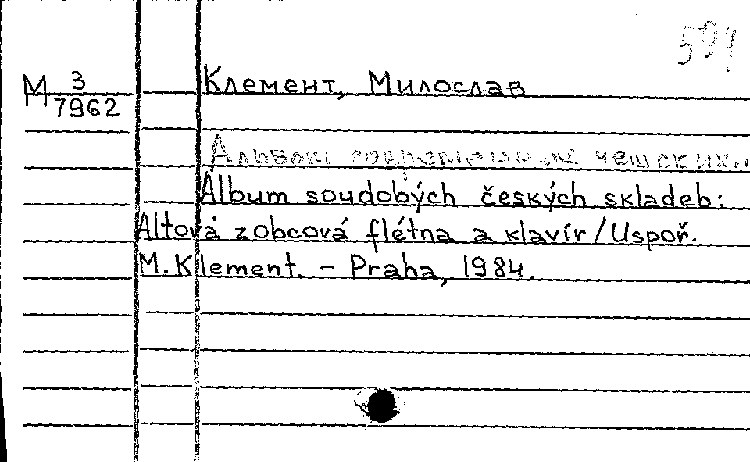 591
М 3
7962
Клемент, Милослав
Альбом современных чешских
Album soudobých českých skladeb:
Altová zobcová flétna a klavír / Uspoř.
M. Klement. – Praha, 1984.